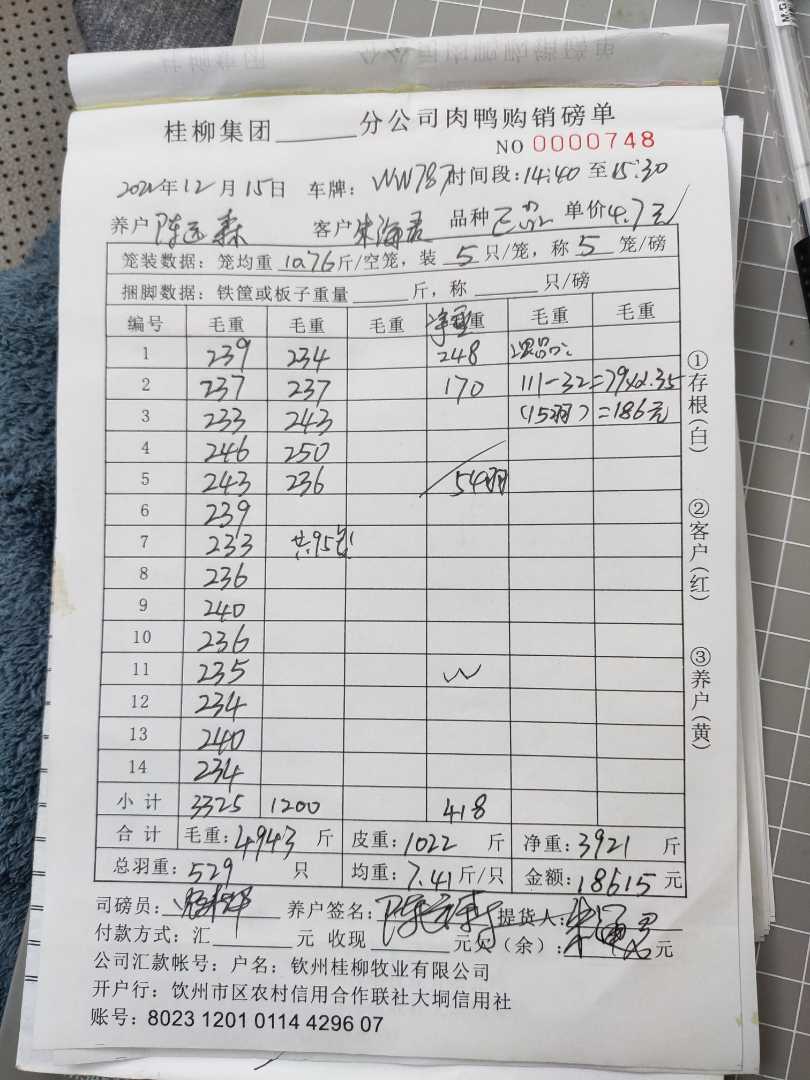 桂柳集团______分公司肉鸭购销磅单
NO 0000748
2022年12月15日 车牌: NN787 时间段:14:40 至15:30
养户 陈远森 客户 朱海君 品种 单价4.7元
笼装数据: 笼均重 10.76 斤/空笼, 装 5 只/笼, 称 5 笼/磅
捆脚数据: 铁筐或板子重量______斤, 称______只/磅
编号 毛重 毛重 毛重 净重 毛重 毛重
1 239 234 248
2 237 237 170 111-32=79×2.35
3 233 243 (15羽) =186元
4 246 250
5 243 236 54羽
6 239
7 233 共95笼
8 236
9 240
10 236
11 235
12 234
13 240
14 234
小计 3325 1200 418
合计 毛重:4943 斤 皮重:1022 斤 净重:3921 斤
总羽重:529 只 均重:7.41斤/只 金额:18615元
司磅员: 养户签名: 提货人:
付款方式: 汇______元 收现______元欠(余):______元
公司汇款帐号: 户名: 钦州桂柳牧业有限公司
开户行: 钦州市区农村信用合作联社大垌信用社
账号: 8023 1201 0114 4296 07
①存根(白)
②客户(红)
③养户(黄)